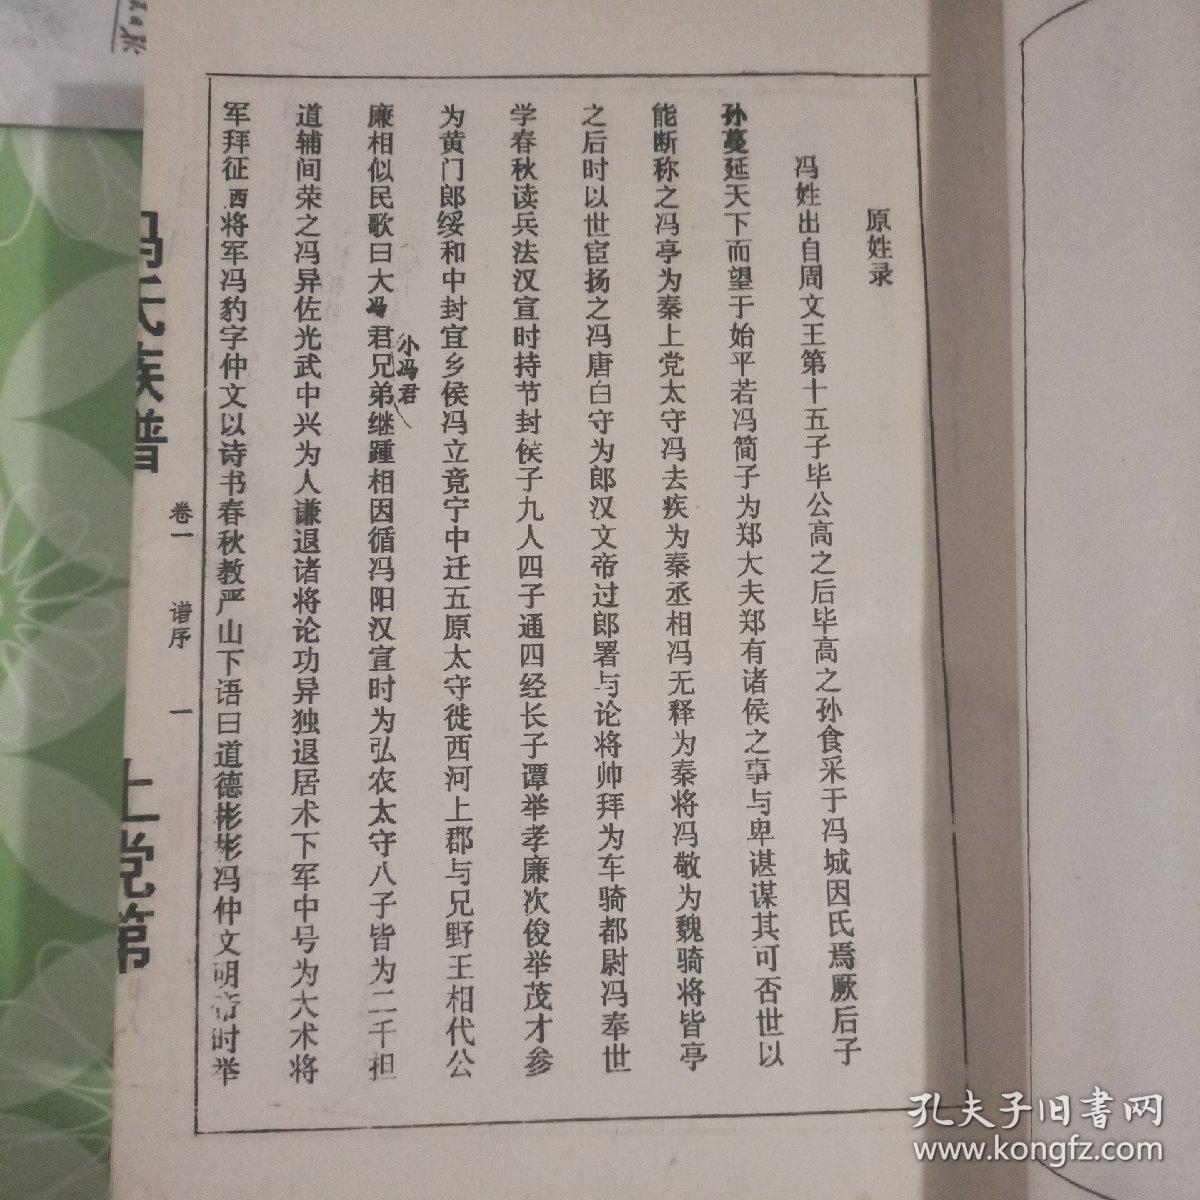 原姓录
冯姓出自周文王第十五子毕公高之后毕高之孙食采于冯城因氏焉厥后子
孙蔓延天下而望于始平若冯简子为郑大夫郑有诸侯之事与卑谌谋其可否世以
能断称之冯亭为秦上党太守冯去疾为秦丞相冯无释为秦将冯敬为魏骑将皆亭
之后时以世宦扬之冯唐白守为郎汉文帝过郎署与论将帅拜为车骑都尉冯奉世
学春秋读兵法汉宣时持节封侯子九人四子通四经长子谭举孝廉次俊举茂才参
为黄门郎绥和中封宜乡侯冯立竟宁中迁五原太守徙西河上郡与兄野王相代公
廉相似民歌曰大冯君兄弟继踵相因循冯阳汉宣时为弘农太守八子皆为二千担
小冯君
道辅间荣之冯异佐光武中兴为人谦退诸将论功异独退居术下军中号为大术将
军拜征西将军冯豹字仲文以诗书春秋教严山下语曰道德彬彬冯仲文明帝时举
冯氏族谱
卷一
谱序
一
上党第
孔夫子旧书网
www.kongfz.com